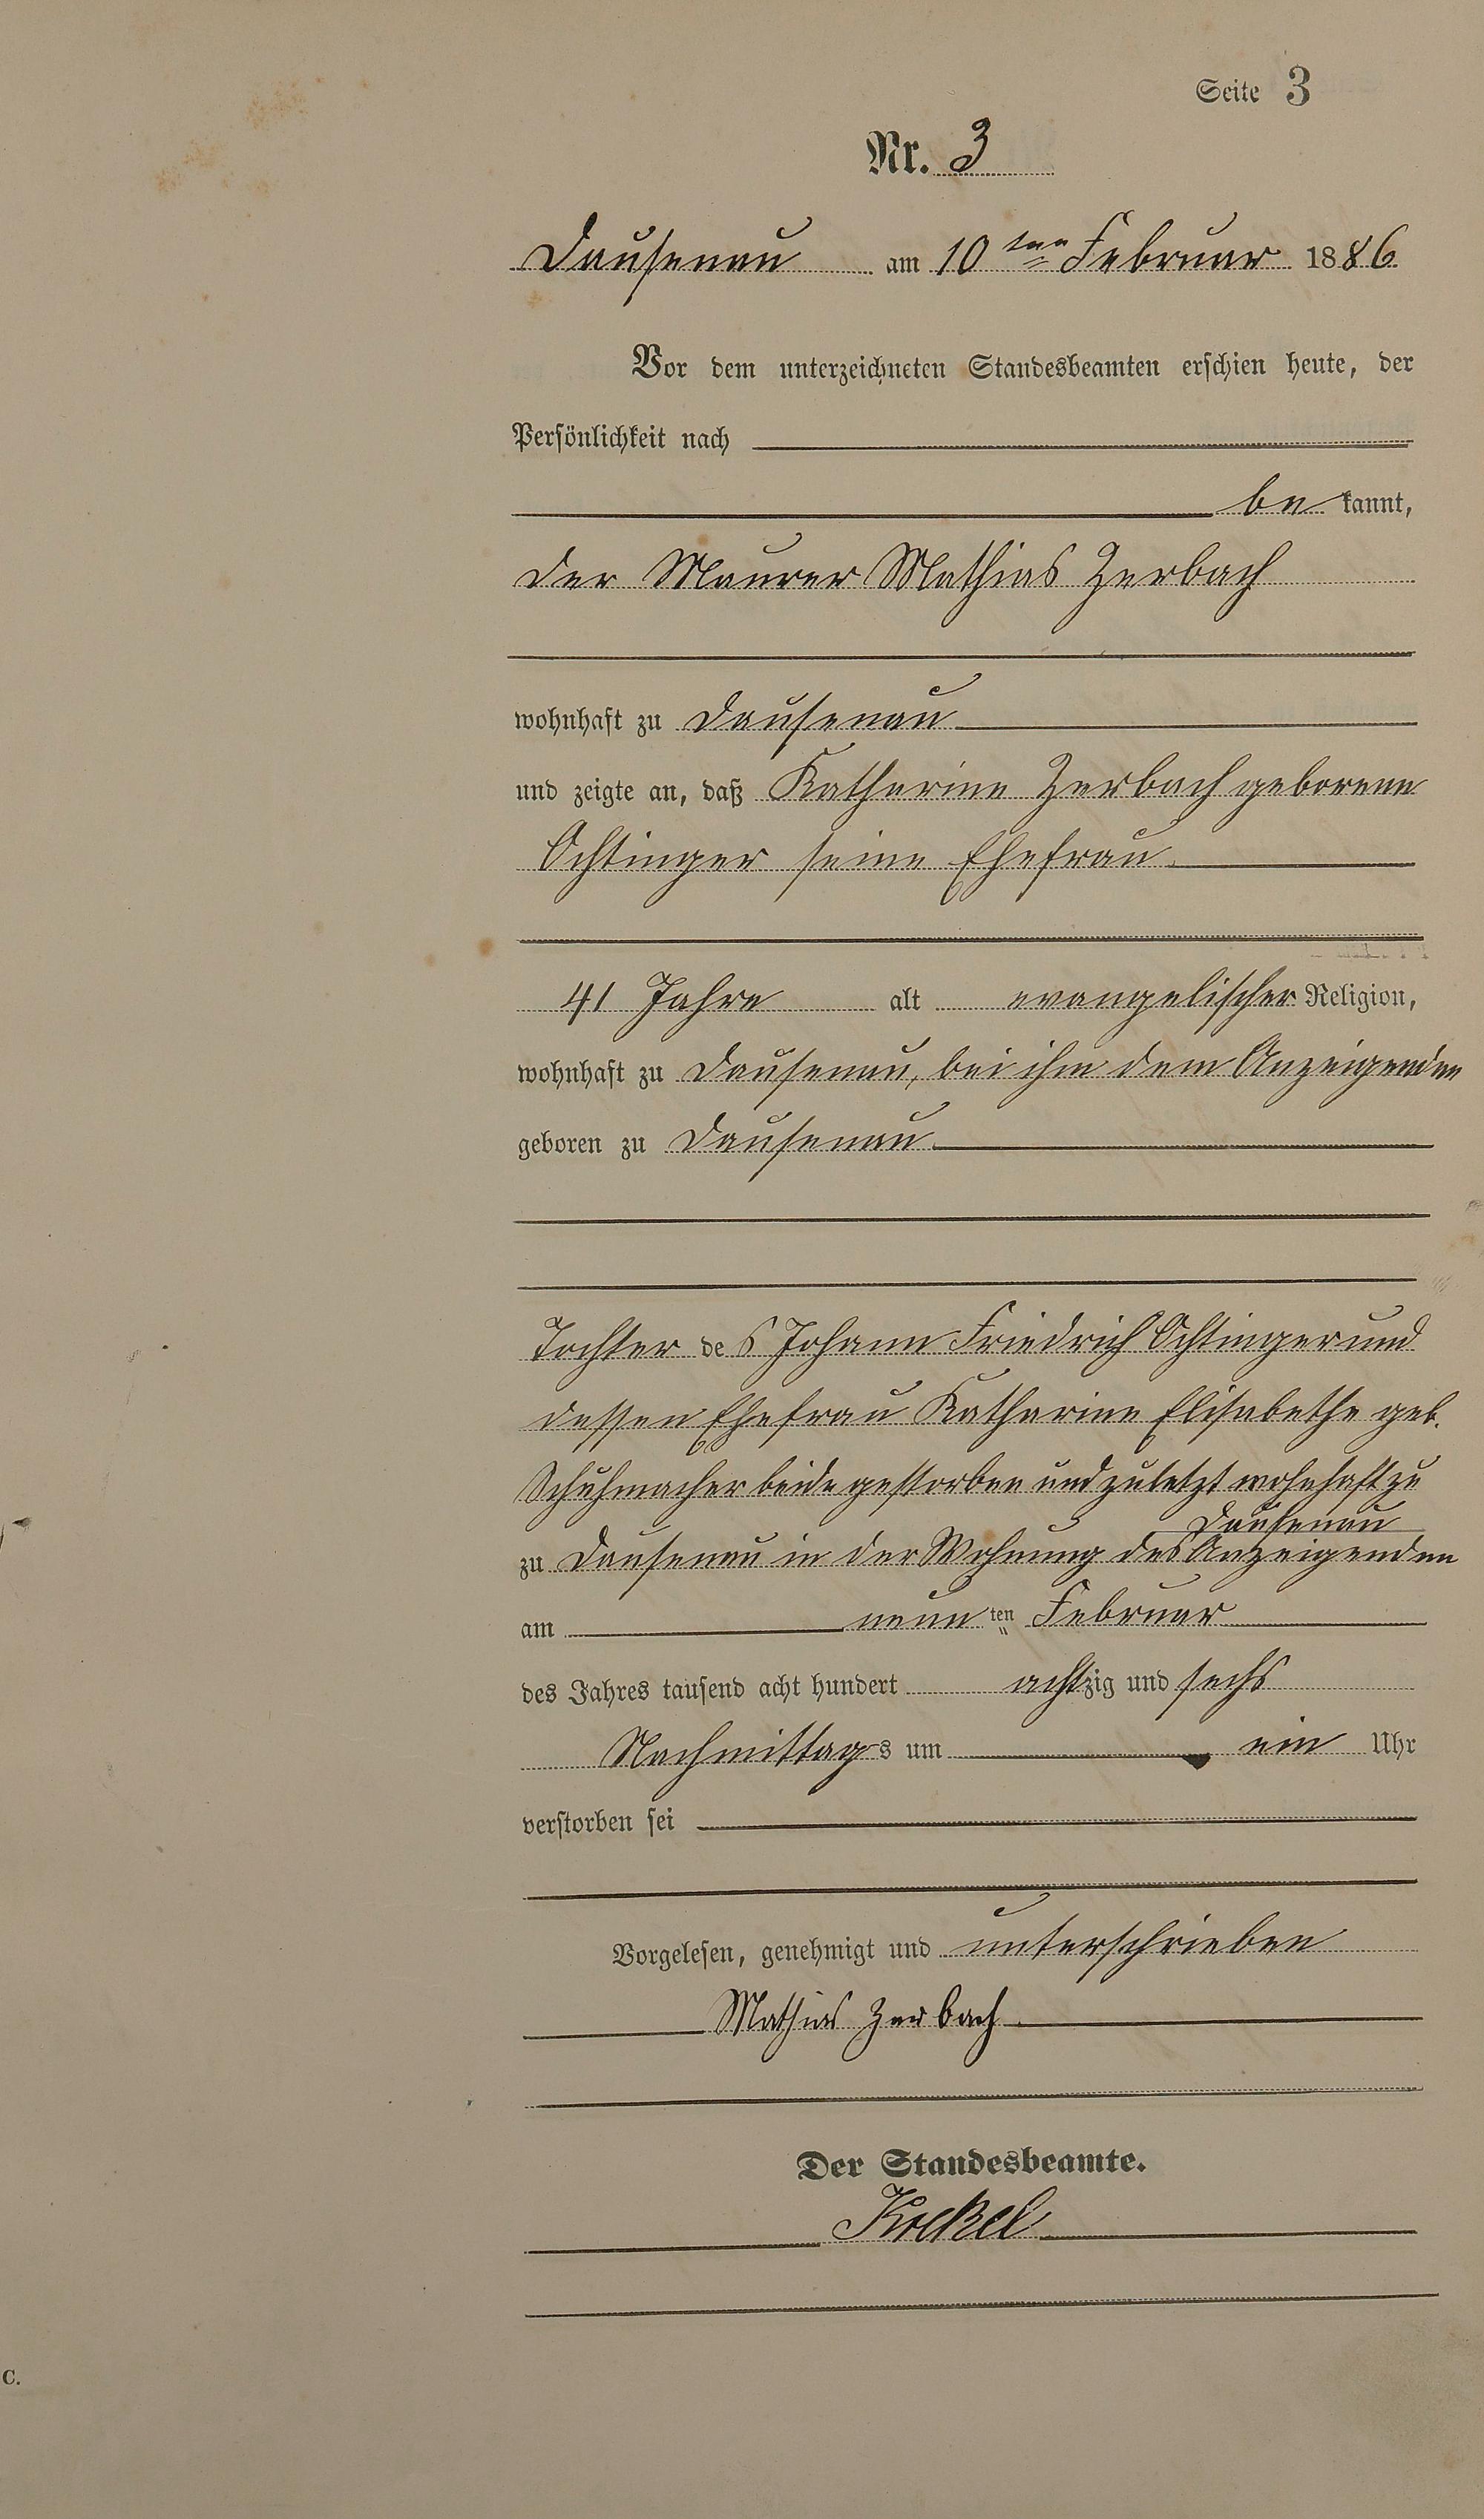 Seite 3
Nr. 3
Dausenau am 10ten Februar 1886
Vor dem unterzeichneten Standesbeamten erschien heute, der
Persönlichkeit nach
be kannt,
der Maurer Mathias Zerbach
wohnhaft zu Dausenau
und zeigte an, daß Katharine Zerbach geborene
Ochtinger seine Ehefrau
41 Jahre alt evangelischer Religion,
wohnhaft zu Dausenau, bei ihm dem Anzeigenden
geboren zu Dausenau
Tochter des Johann Friedrich Ochtinger und
dessen Ehefrau Katharine Elisabethe geb.
Schuhmacher beide gestorben und zuletzt wohnhaft zu
Dausenau
zu Dausenau in der Wohnung des Anzeigenden
am neunten Februar
des Jahres tausend acht hundert achtzig und sechs
Nachmittags um ein Uhr
verstorben sei
Vorgelesen, genehmigt und unterschrieben
Mathias Zerbach
Der Standesbeamte.
Kockel
C.